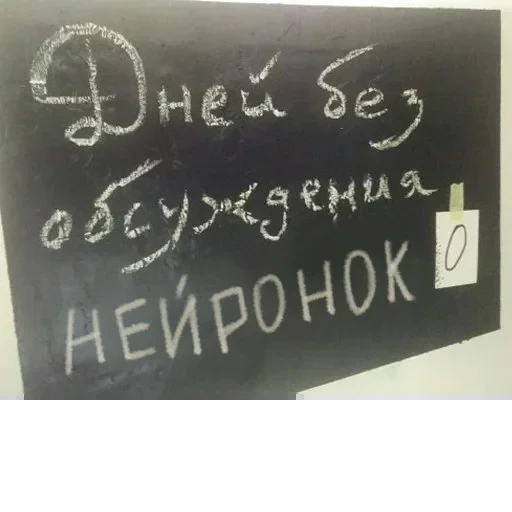 Дней без
обсуждения
НЕЙРОНОК
0